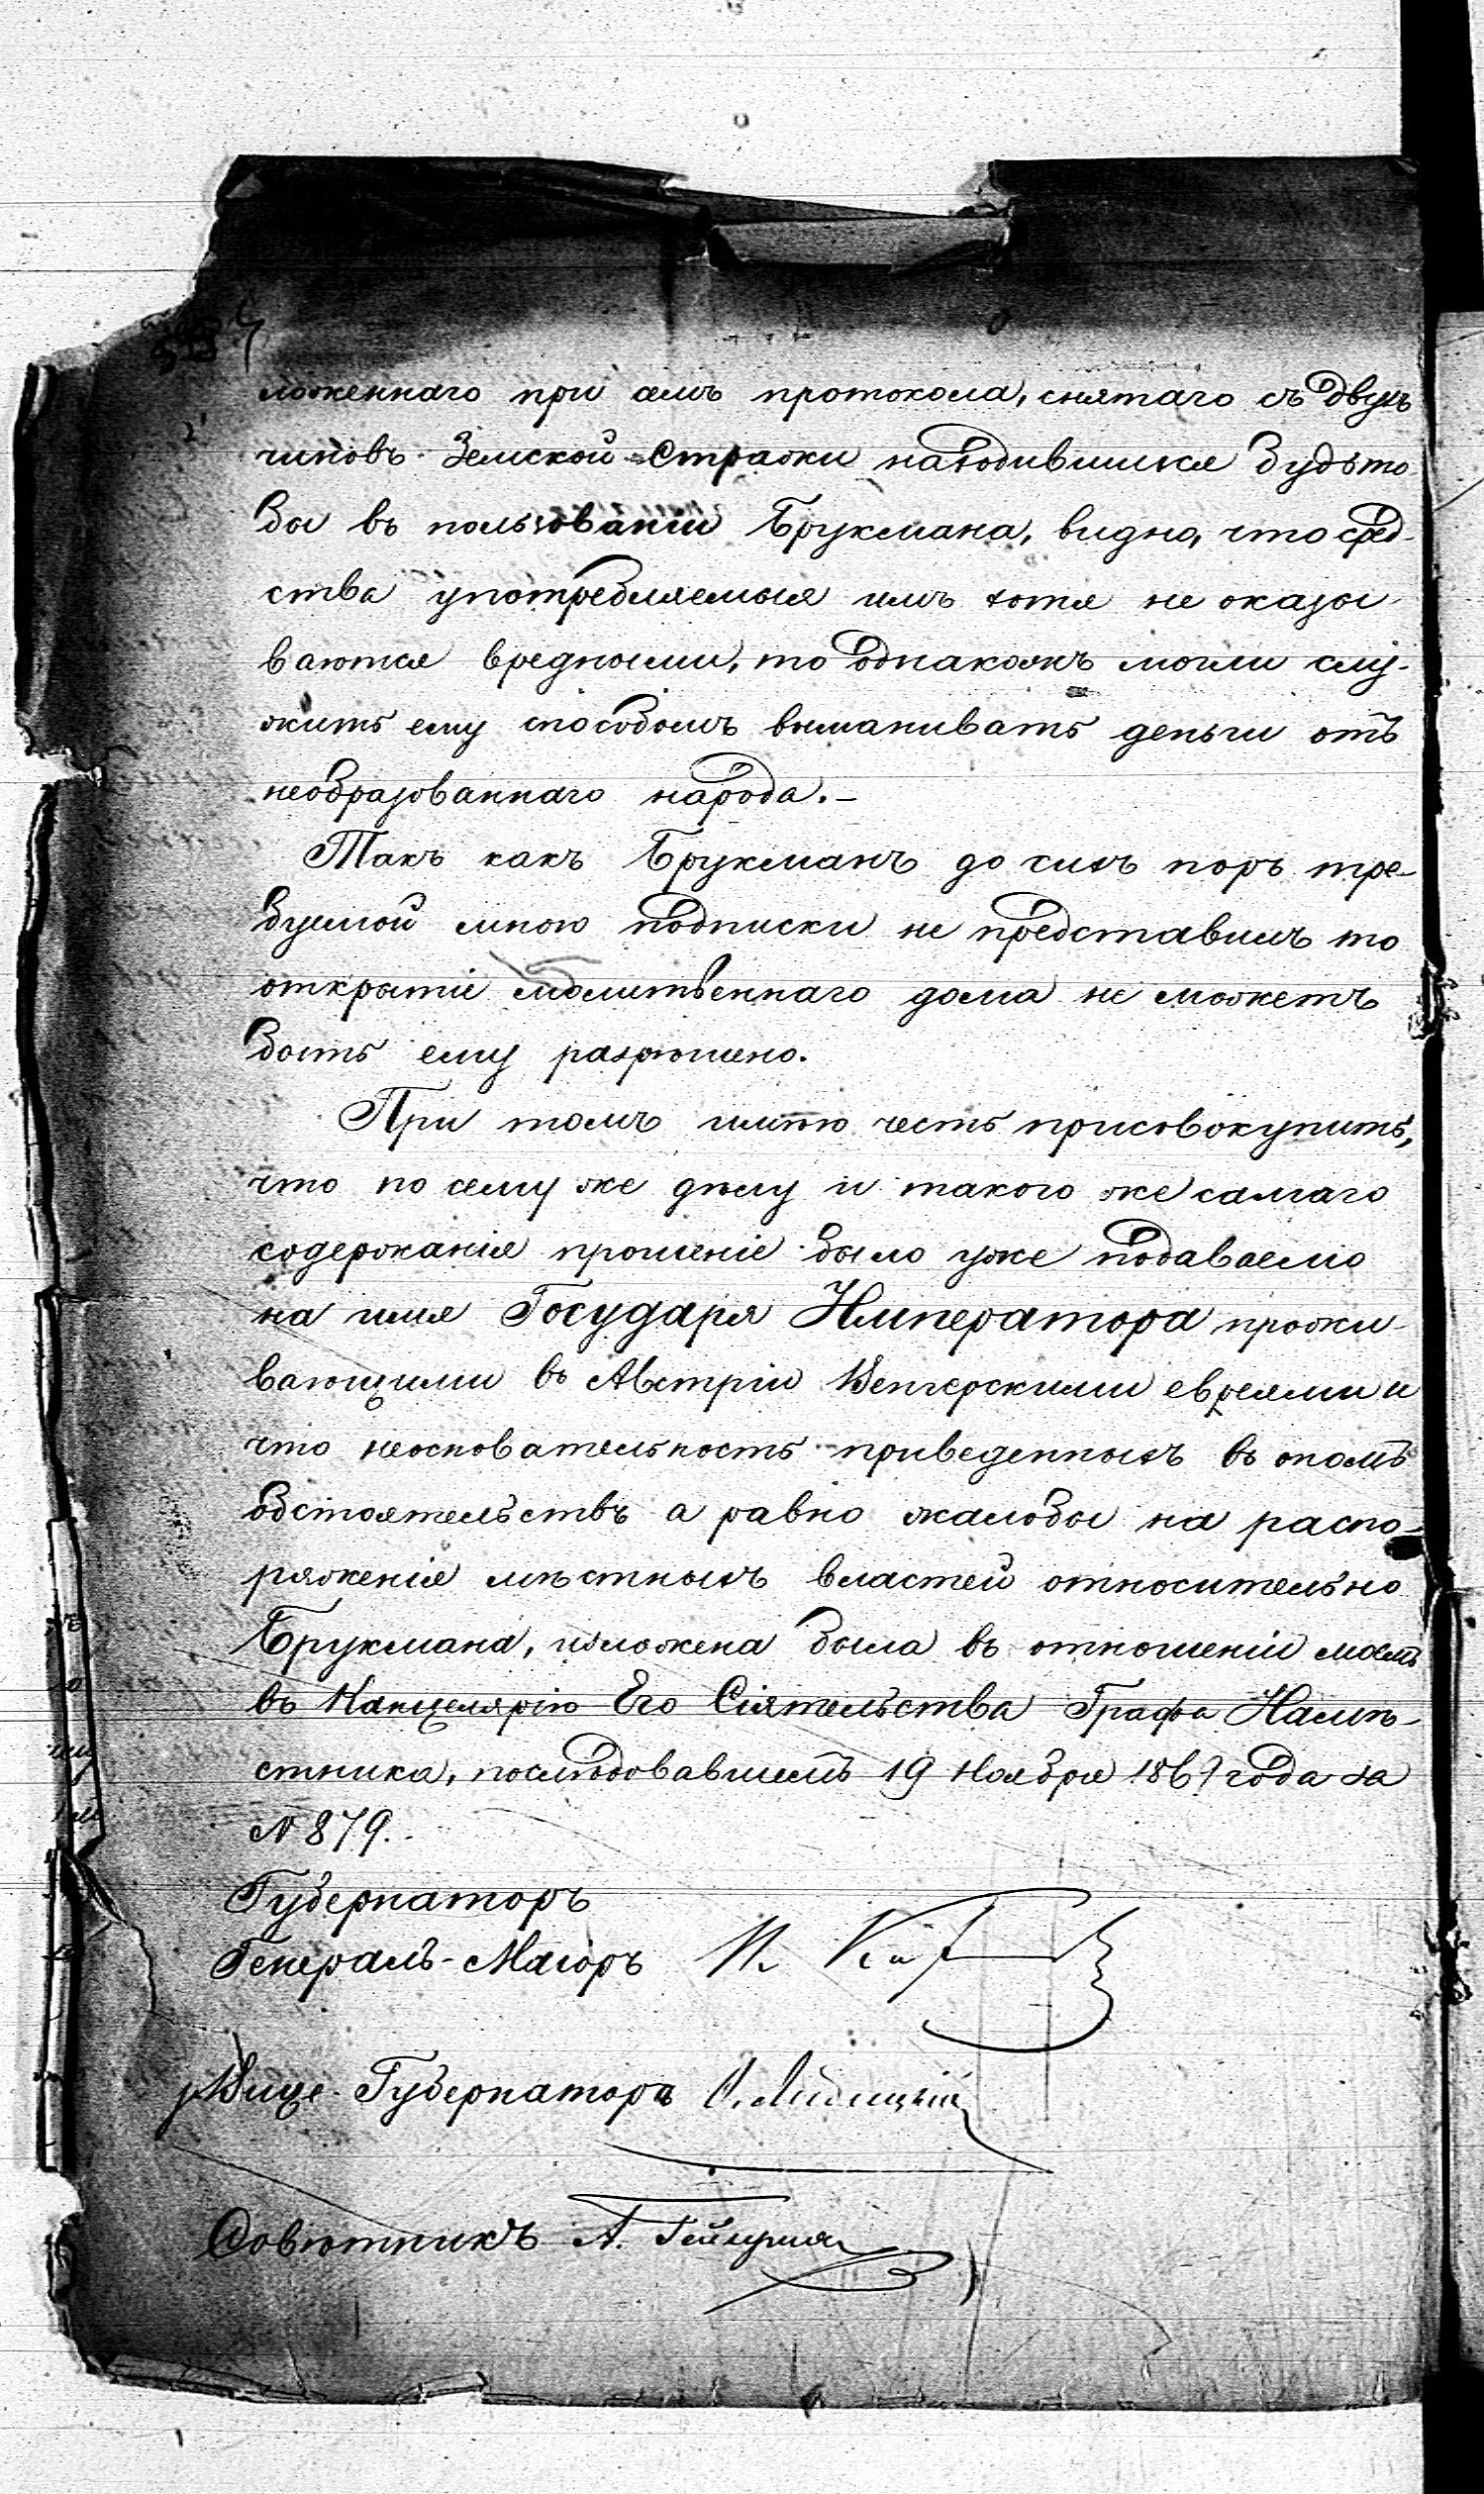 ложеннаго при семъ протокола, снятаго съ двухъ
чиновъ Земской Стражи находившихся будьто
бы въ пользованіи Брукмана, видно, что сред-
ства употребляемыя имъ хотя не оказы-
ваются вредными, то однакожъ могли слу-
жить ему способомъ выманивать деньги отъ
необразованнаго народа.—
Такъ какъ Брукманъ до сихъ поръ тре-
буемой мною подписки не представилъ то
открытіе молитвеннаго дома не можетъ
быть ему разрѣшено.
При томъ имѣю честь присовокупить,
что по сему же дѣлу и такого же самаго
содержанія прошеніе было уже подаваемо
на имя Государя Императора прожи-
вающими въ Австріи Венгерскими евреями и
что неосновательность приведенныхъ въ ономъ
обстоятельствъ а равно жалобы на распо-
ряженіе мѣстныхъ властей относительно
Брукмана, изложена была въ отношеніи моемъ
въ Канцелярію Его Сіятельства Графа Намѣ-
стника, послѣдовавшемъ 19 Ноября 186 года за
N 879.
Губернаторъ
Генералъ-Маіоръ
Вице-Губернаторъ
Совѣтникъ А.